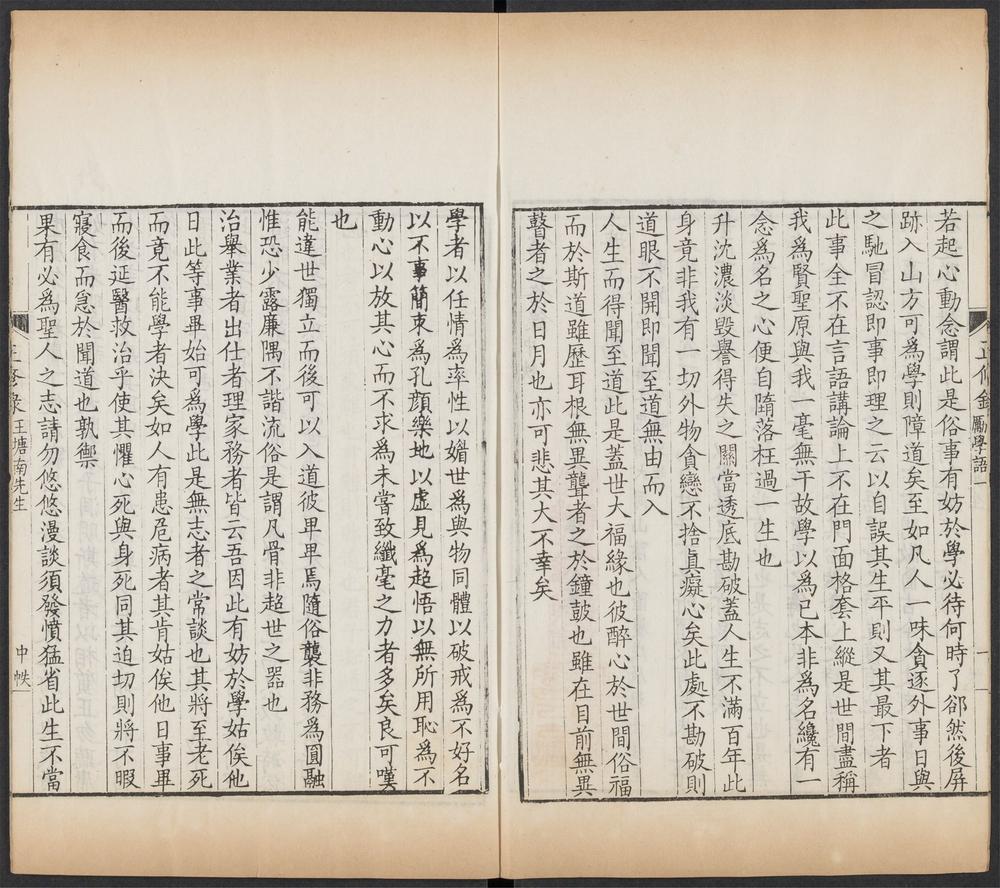 若起心動念謂此是俗事有妨於學必待何時了郤然後屏
跡入山方可為學則障道矣至如凡人一味貪逐外事日與
之馳冒認即事即理之云以自誤其生平則又其最下者
此事全不在言語講論上不在門面格套上縱是世間盡稱
我為賢聖原與我一毫無干故學以為已本非為名纔有一
念為名之心便自隳落枉過一生也
升沈濃淡毀譽得失之關當透底勘破蓋人生不滿百年此
身竟非我有一切外物貪戀不捨真癡心矣此處不勘破則
道眼不開即聞至道無由而入
人生而得聞至道此是蓋世大福緣也彼醉心於世間俗福
而於斯道雖歷耳根無異聾者之於鐘鼓也雖在目前無異
瞽者之於日月也亦可悲其大不幸矣
學者以任情為率性以媚世為與物同體以破戒為不好名
以不事簡束為孔顏樂地以虛見為超悟以無所用恥為不
動心以放其心而不求為未嘗致纖毫之力者多矣良可嘆
也
能違世獨立而後可以入道彼卑卑焉隨俗襲非務為圓融
惟恐少露廉隅不諧流俗是謂凡骨非超世之器也
治舉業者出仕者理家務者皆云吾因此有妨於學姑俟他
日此等事畢始可為學此是無志者之常談也其將至老死
而竟不能學者決矣如人有患危病者其肯姑俟他日事畢
而後延醫救治乎使其懼心死與身死同其迫切則將不暇
寢食而急於聞道也孰禦
果有必為聖人之志請勿悠悠漫談須發憤猛省此生不當
王塘南先生
中帙
勵學語一